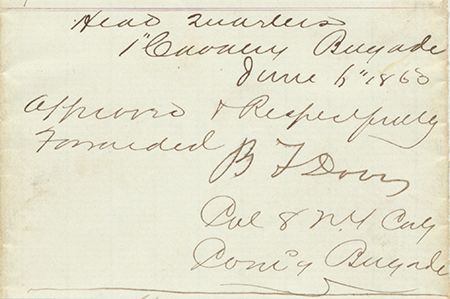 Head Quarters
1" Cavalry Brigade
June 6" 1863
Approved & Respectfully
Forwarded
B F Davis
Col 8 N.Y Cav
Com'g Brigade